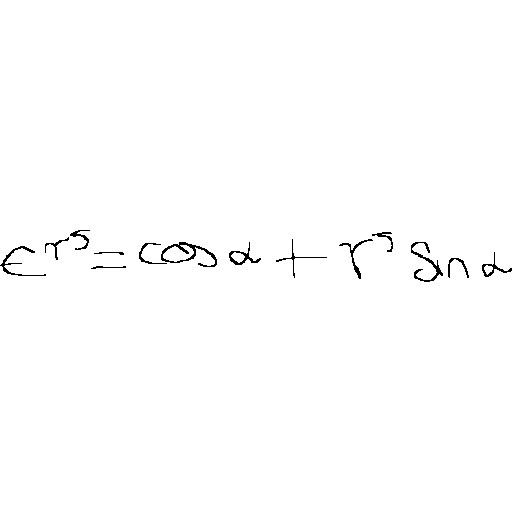 e^{r^5} = cos α + r^5 sin α